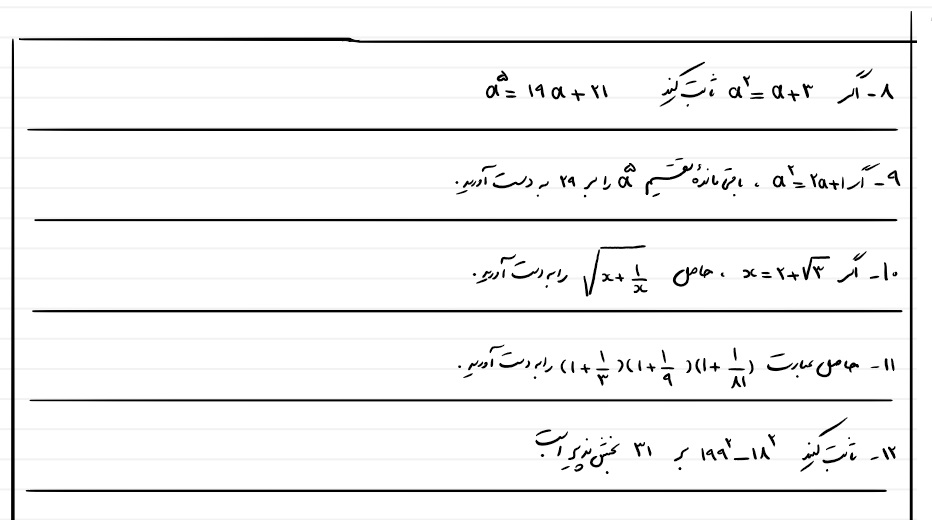 ۸- اگر a^۲ = a+۳ ثابت کنید a^۵ = ۱۹a + ۲۱
۹- اگر a^۲ = ۲a+۱ ، باقی ماندهٔ تقسیم a^۵ را بر ۲۹ به دست آورید.
۱۰- اگر x = ۲+√۳ ، حاصل √(x + ۱/x) را به دست آورید.
۱۱- حاصل عبارت (۱ + ۱/۳)(۱ + ۱/۹)(۱ + ۱/۸۱) را به دست آورید.
۱۲- ثابت کنید ۱۹۹^۲ – ۱۸^۲ بر ۳۱ بخش پذیر است